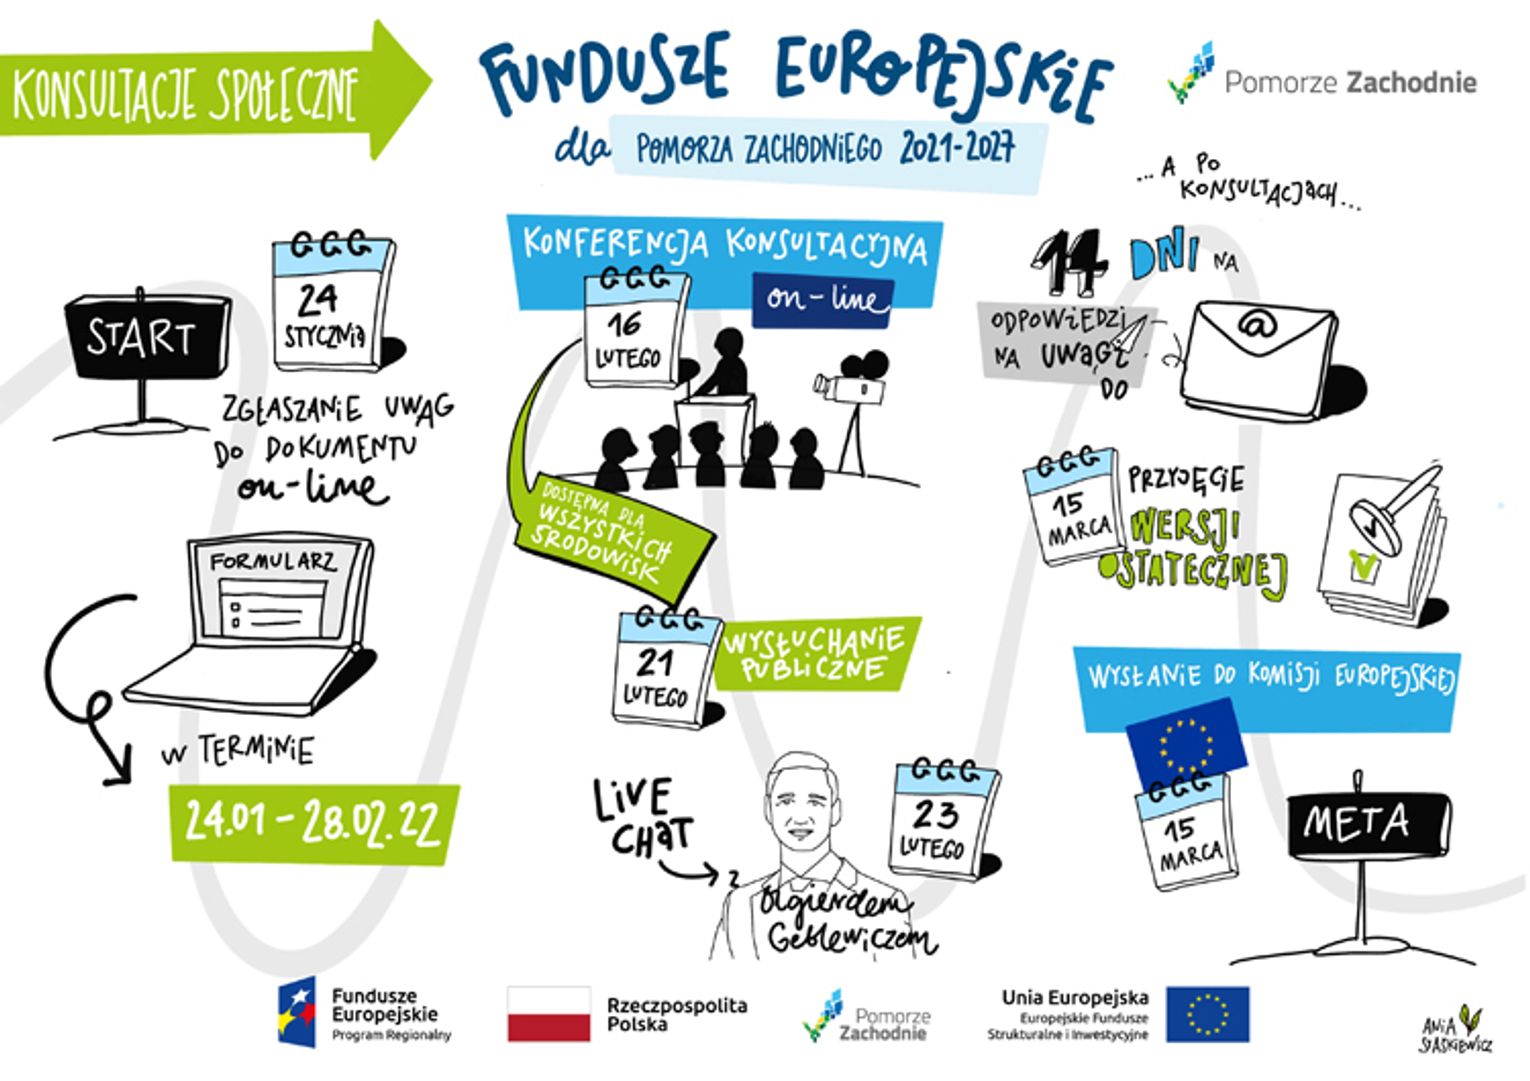 KONSULTACJE SPOŁECZNE
FUNDUSZE EUROPEJSKIE
dla POMORZA ZACHODNIEGO 2021-2027
Pomorze Zachodnie
START
24
STYCZNIA
ZGŁASZANIE UWAG
DO DOKUMENTU
on-line
FORMULARZ
W TERMINIE
24.01 - 28.02.22
KONFERENCJA KONSULTACYJNA
on-line
16
LUTEGO
DOSTĘPNA DLA
WSZYSTKICH
ŚRODOWISK
21
LUTEGO
WYSŁUCHANIE
PUBLICZNE
LIVE
CHAT
Z
Olgierdem
Geblewiczem
23
LUTEGO
... A PO
KONSULTACJACH...
14 DNI NA
ODPOWIEDZI
NA UWAGI
DO
@
15
MARCA
PRZYJĘCIE
WERSJI
OSTATECZNEJ
WYSŁANIE DO KOMISJI EUROPEJSKIEJ
15
MARCA
META
Fundusze
Europejskie
Program Regionalny
Rzeczpospolita
Polska
Pomorze
Zachodnie
Unia Europejska
Europejskie Fundusze
Strukturalne i Inwestycyjne
ANIA